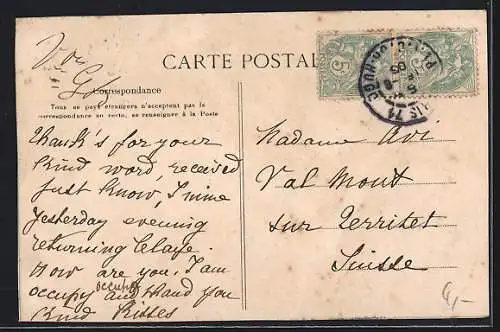 Von
CARTE POSTALE
Correspondance
Tous les pays étrangers n'acceptent pas la
correspondance au recto, se renseigner à la Poste
thank's for your
kind word, received
just know, I mine
yesterday evening
returning
How are you, I am
occupy
occupy and thand you
kind Kisses
Madame Avi
Val Mont
sur Territet
Suisse
5 5
PARIS 71
4,-